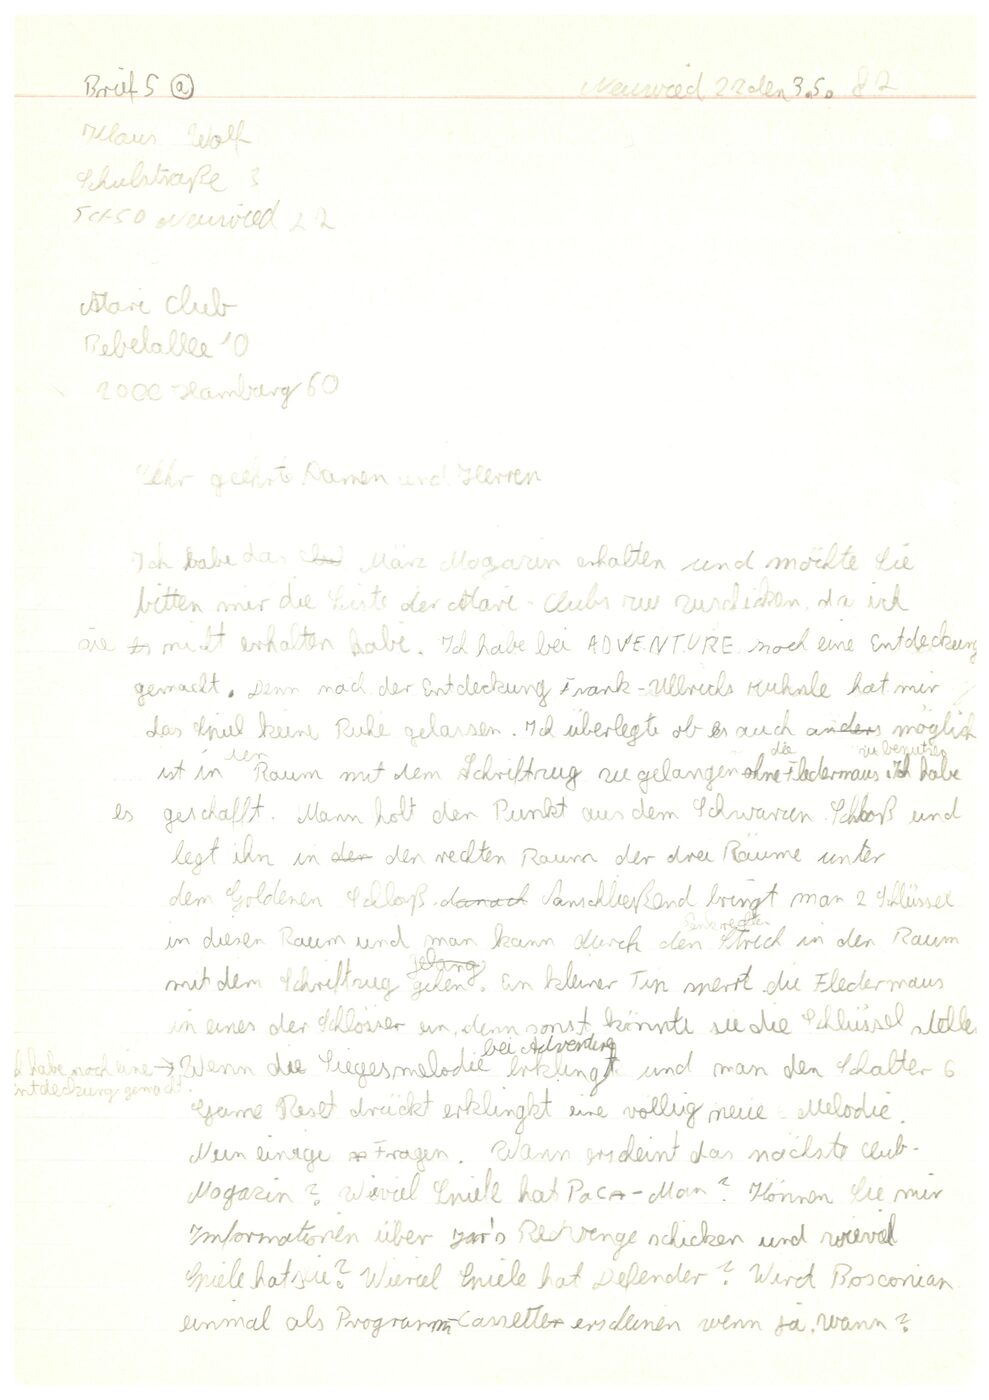 Brief 5 a
Neuwied 22 den 3.5. 82
Klaus Wolf
Schulstraße 3
5450 Neuwied 22
Atari Club
Bebelallee 10
2000 Hamburg 60
Sehr geehrte Damen und Herren
Ich habe das Club März Magazin erhalten und möchte Sie
bitten mir die Liste der Atari-Clubs zuschicken, da ich
sie es nicht erhalten habe. Ich habe bei ADVENTURE noch eine Entdeckung
gemacht. Denn nach der Entdeckung Frank-Ullrichs Kuhnle hat mir
das Spiel keine Ruhe gelassen. Ich überlegte ob es auch anders möglich
ist in den Raum mit dem Schriftzug zu gelangen ohne die Fledermaus zu benutzen. Ich habe
es geschafft. Mann holt den Punkt aus dem Schwarzen Schloß und
legt ihn in der den rechten Raum der drei Räume unter
dem Goldenen Schloß. danach Sanschließend bringt man 2 Schlüssel
in diesen Raum und man kann durch den senkrechten Strich in den Raum
mit dem Schriftzug gelang gehen. Ein kleiner Tip sperrt die Fledermaus
in eines der Schlösser ein, denn sonst könnte sie die Schlüssel stehle
h habe noch eine → Wenn die Siegesmelodie bei Adventure erklingt und man den Schalter 6
ntdeckung gemacht.
Game Reset drückt erklingkt eine völlig neue Melodie.
Nun einige Fragen. Wann erscheint das nächste Club-
Magazin? Wieviel Spiele hat Pac-Man? Können Sie mir
Informationen über Yar's Revenge schicken und wieviel
Spiele hat sie? Wieviel Spiele hat Defender? Wird Bosconian
einmal als Programm-Cassette erscheinen wenn ja, wann?